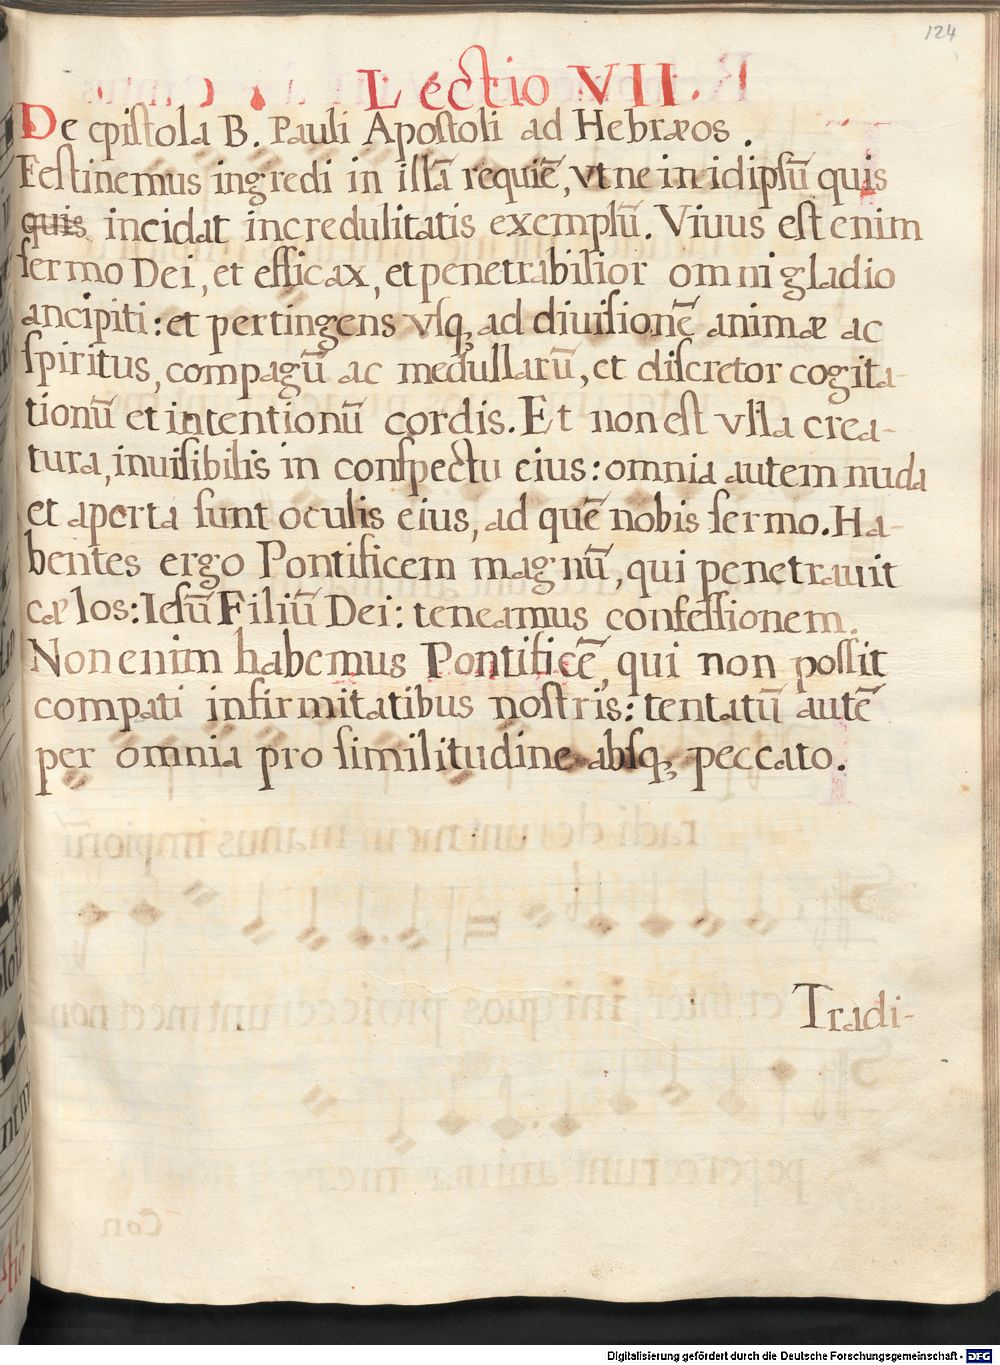 124
Lectio VII.
De epistola B. Pauli Apostoli ad Hebræos.
Festinemus ingredi in illã requiẽ, vt ne in idipsũ quis
quis incidat incredulitatis exemplũ. Viuus est enim
sermo Dei, et efficax, et penetrabilior omni gladio
ancipiti: et pertingens vsq; ad diuisionẽ animæ ac
spiritus, compagũ ac medullarũ, et discretor cogita-
tionũ et intentionũ cordis. Et non est vlla crea-
tura, inuisibilis in conspectu eius: omnia autem nuda
et aperta sunt oculis eius, ad quẽ nobis sermo. Ha-
bentes ergo Pontificem magnũ, qui penetrauit
cælos: Iesũ Filiũ Dei: teneamus confessionem.
Non enim habemus Pontificẽ, qui non possit
compati infirmitatibus nostris: tentatũ autẽ
per omnia pro similitudine absq; peccato.
Tradi-
Digitalisierung gefördert durch die Deutsche Forschungsgemeinschaft - DFG